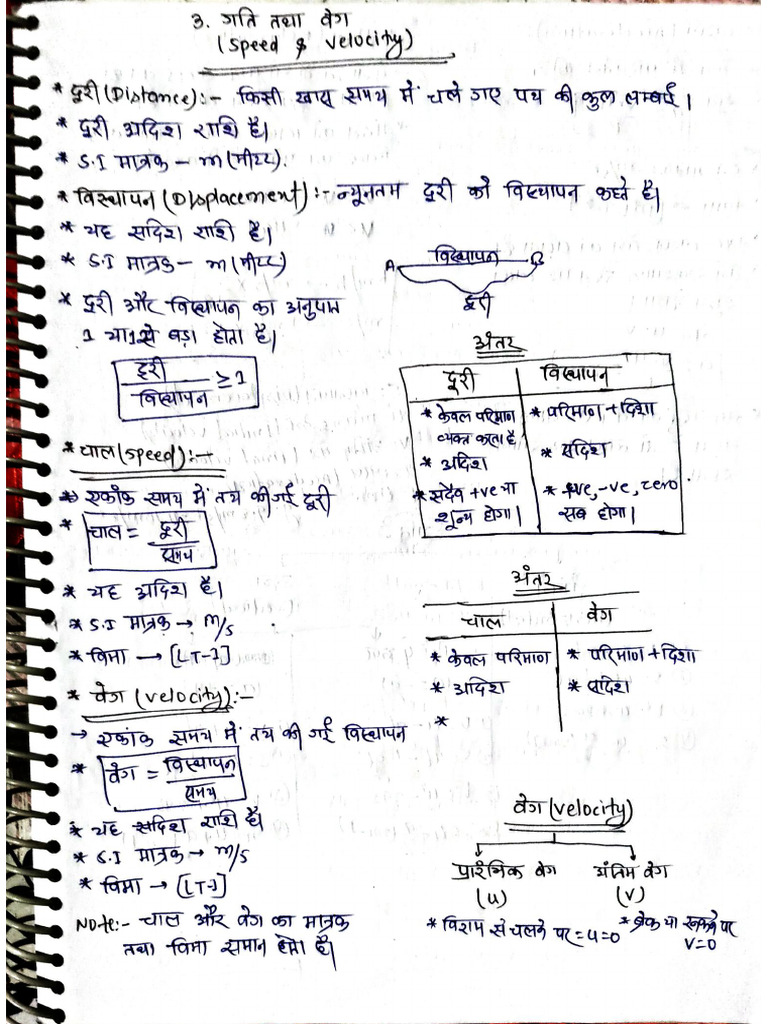 3. गति तथा वेग
(Speed & Velocity)
* दूरी (Distance):- किसी खास समय में चले गए पथ की कुल लम्बाई।
* दूरी अदिश राशि है।
* S.I मात्रक - m (मीटर).
* विस्थापन (Displacement):- न्यूनतम दूरी को विस्थापन कहते है।
* यह सदिश राशि है।
* S.I मात्रक - m (मीटर)
A विस्थापन B
दूरी
* दूरी और विस्थापन का अनुपात
1 या 1 से बड़ा होता है।
दूरी
विस्थापन ≥ 1
अंतर
दूरी विस्थापन
* केवल परिमाण * परिमाण + दिशा
व्यक्त करता है
* अदिश * सदिश
* सदैव +ve या * +ve, -ve, zero
शून्य होगा। सब होगा।
* चाल (speed):-
→ एकांक समय में तय की गई दूरी
* चाल = दूरी
समय
* यह अदिश है।
* S.I मात्रक → m/s
* विमा → [LT-1]
अंतर
चाल वेग
* केवल परिमाण * परिमाण + दिशा
* अदिश * सदिश
*
* वेग (velocity):-
→ एकांक समय में तय की गई विस्थापन
* वेग = विस्थापन
समय
* यह सदिश राशि है।
* S.I मात्रक → m/s
* विमा → [LT-1]
Note:- चाल और वेग का मात्रक
तथा विमा समान होता है।
वेग (velocity)
प्रारंभिक वेग अंतिम वेग
(u) (v)
* विराम से चलने पर = u=0 * ब्रेक या रुकने पर
v=0